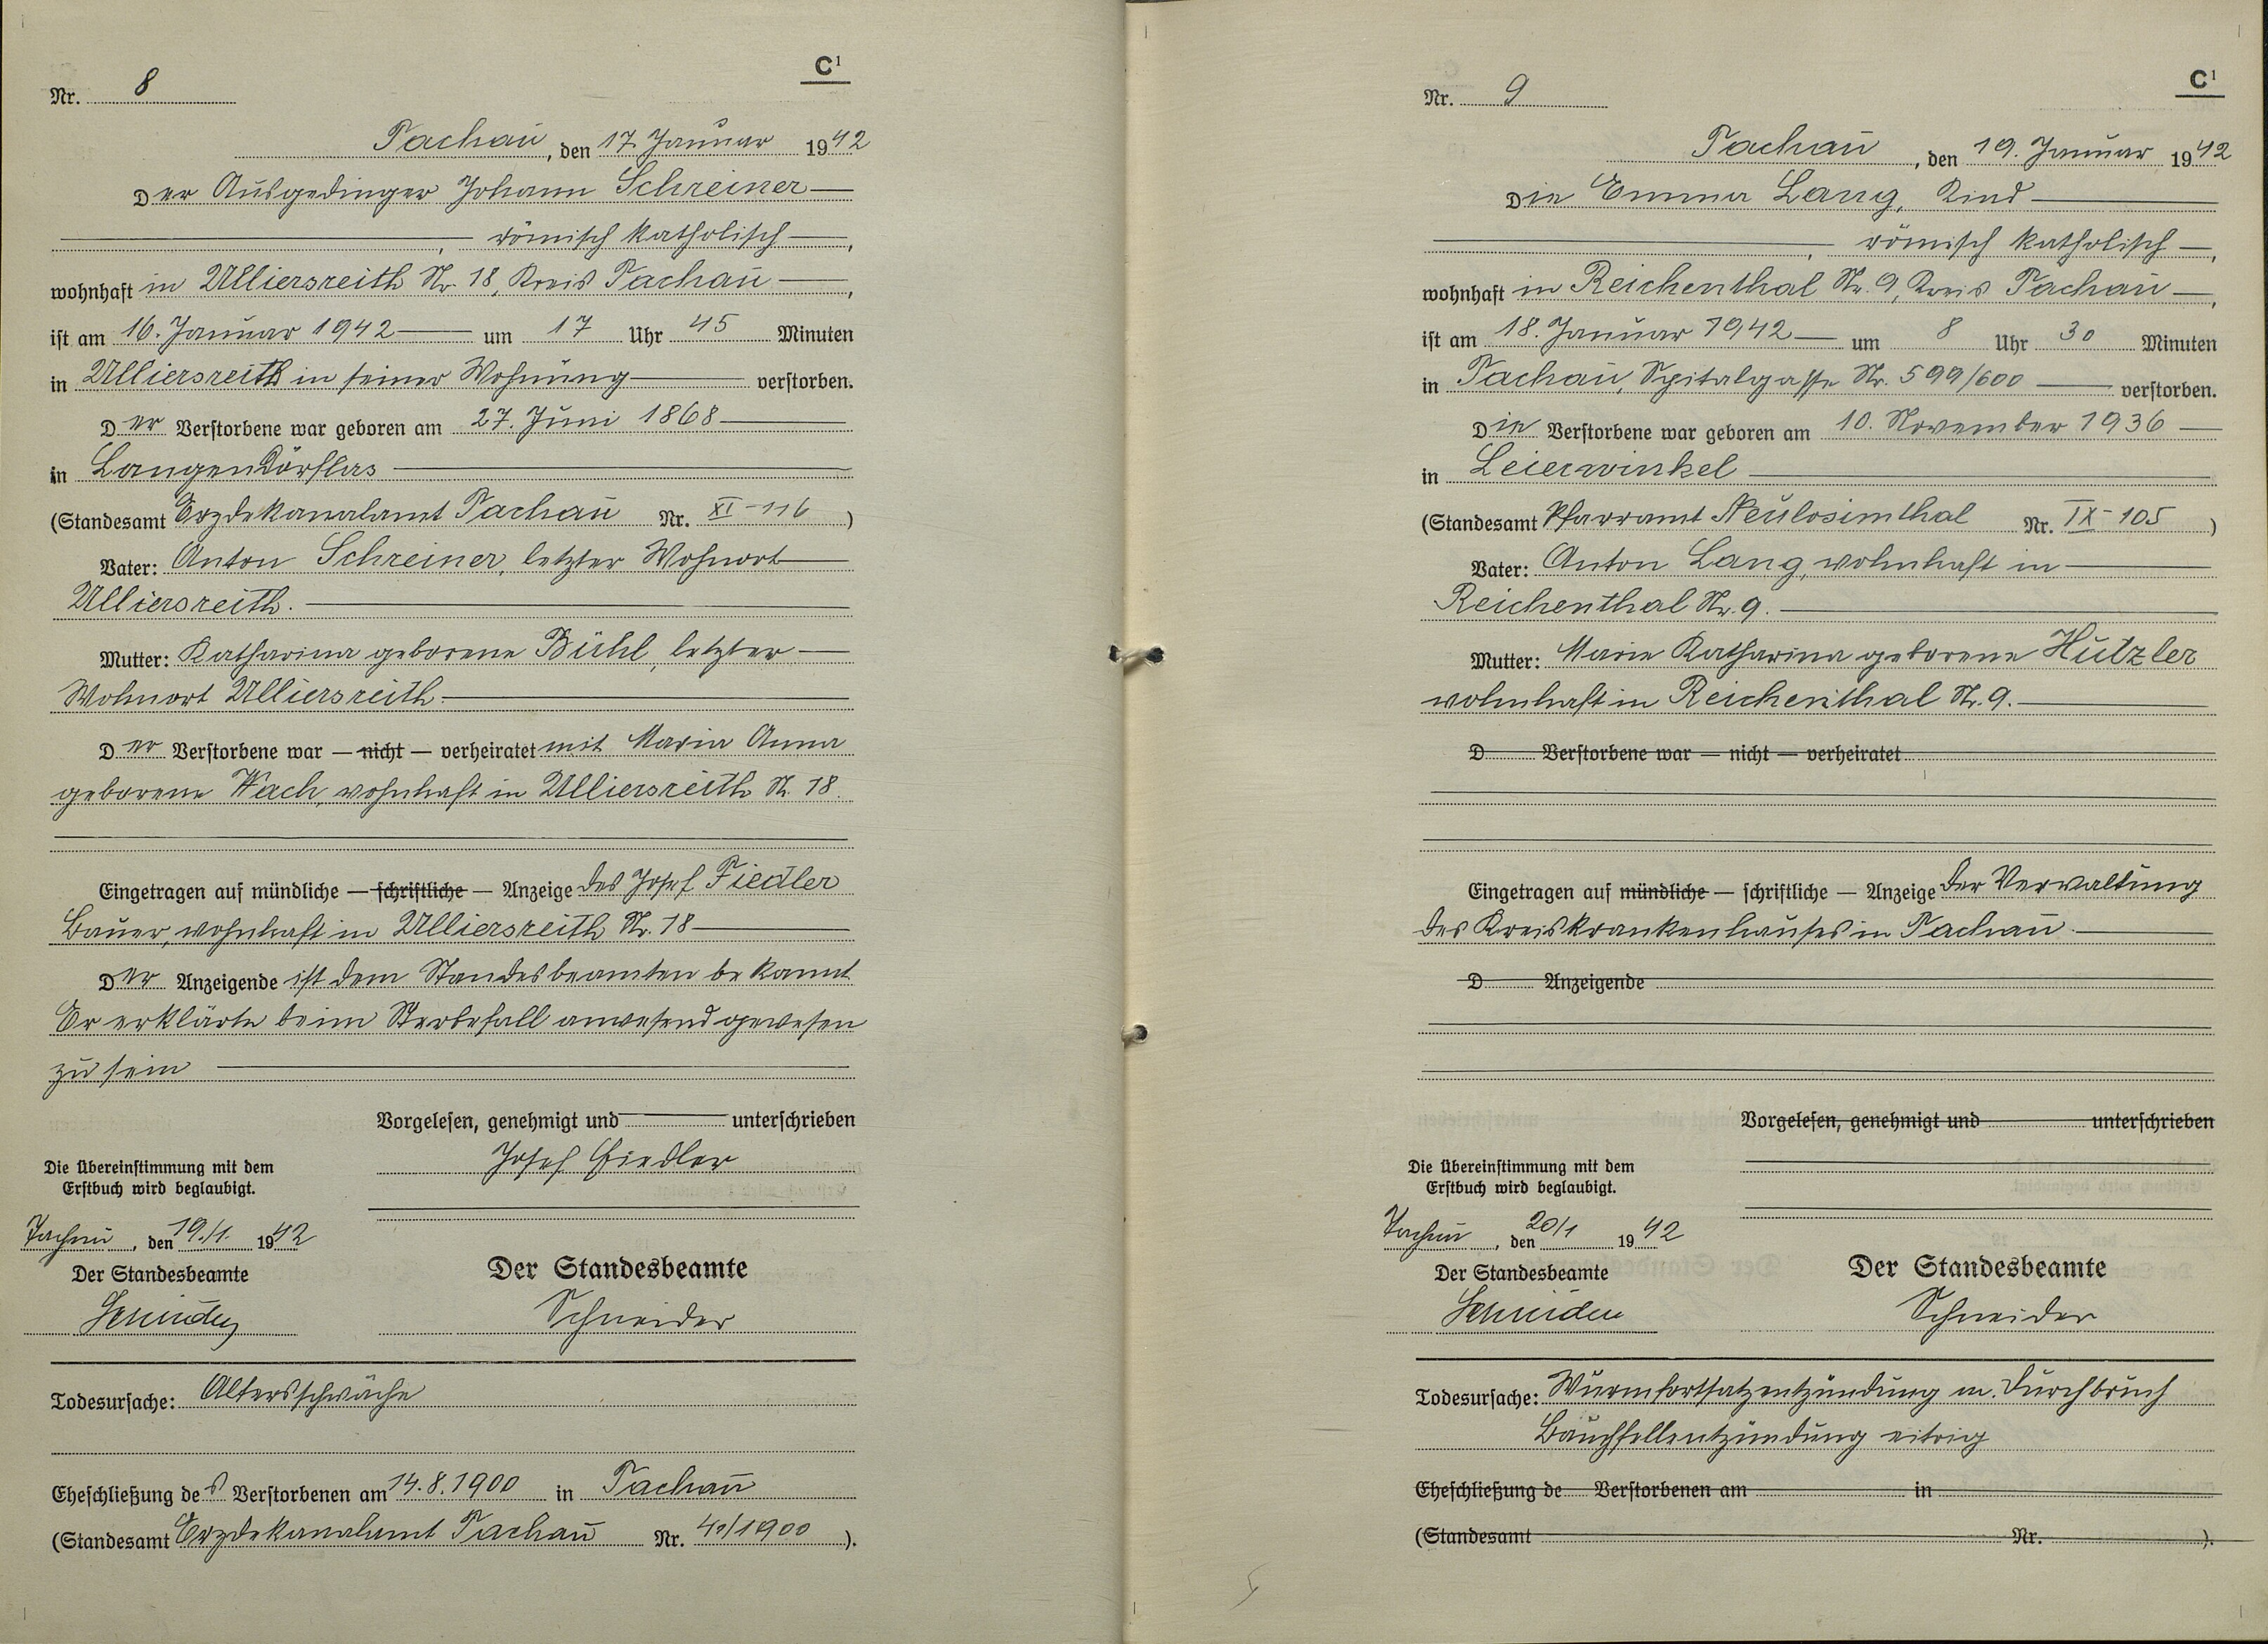 C¹
Nr. 8
Tachau, den 17. Januar 1942
Der Ausgedinger Johann Schreiner
, römisch katholisch,
wohnhaft in Ulliersreith Nr. 18, Kreis Tachau,
ist am 16. Januar 1942 um 17 Uhr 45 Minuten
in Ulliersreith in seiner Wohnung verstorben.
Der Verstorbene war geboren am 27. Juni 1868
in Langendörflas
(Standesamt Erzdekanalamt Tachau Nr. XI-116)
Vater: Anton Schreiner, letzter Wohnort
Ulliersreith.
Mutter: Katharina geborene Bühl, letzter
Wohnort Ulliersreith.
Der Verstorbene war — nicht — verheiratet mit Maria Anna
geborene Wach, wohnhaft in Ulliersreith Nr. 18.
Eingetragen auf mündliche — schriftliche — Anzeige des Josef Fiedler
Bauer, wohnhaft in Ulliersreith Nr. 18
Der Anzeigende ist dem Standesbeamten bekannt.
Er erklärte beim Sterbefall anwesend gewesen
zu sein
Vorgelesen, genehmigt und unterschrieben
Josef Fiedler
Die Übereinstimmung mit dem
Erstbuch wird beglaubigt.
Tachau, den 19./1. 1942
Der Standesbeamte
Der Standesbeamte
Schneider
Schneider
Todesursache: Altersschwäche
Eheschließung des Verstorbenen am 14.8.1900 in Tachau
(Standesamt Erzdekanalamt Tachau Nr. /1900).
C¹
Nr. 9
Tachau, den 19. Januar 1942
Die Emma Lang, Kind
, römisch katholisch,
wohnhaft in Reichenthal Nr. 9, Kreis Tachau,
ist am 18. Januar 1942 um 8 Uhr 30 Minuten
in Tachau, Spitalgasse Nr. 599/600 verstorben.
Die Verstorbene war geboren am 10. November 1936
in Leierwinkel
(Standesamt Pfarramt Neulosimthal Nr. IX-105)
Vater: Anton Lang, wohnhaft in
Reichenthal Nr. 9.
Mutter: Marie Katharina geborene Hutzler
wohnhaft in Reichenthal Nr. 9.
D Verstorbene war — nicht — verheiratet
Eingetragen auf mündliche — schriftliche — Anzeige der Verwaltung
des Kreiskrankenhauses in Tachau.
D Anzeigende
Vorgelesen, genehmigt und unterschrieben
Die Übereinstimmung mit dem
Erstbuch wird beglaubigt.
Tachau, den 20/1 1942
Der Standesbeamte
Der Standesbeamte
Schneider
Schneider
Todesursache: Wurmfortsatzentzündung m. Durchbruch
Bauchfellentzündung eitrig
Eheschließung de Verstorbenen am in
(Standesamt Nr. ).